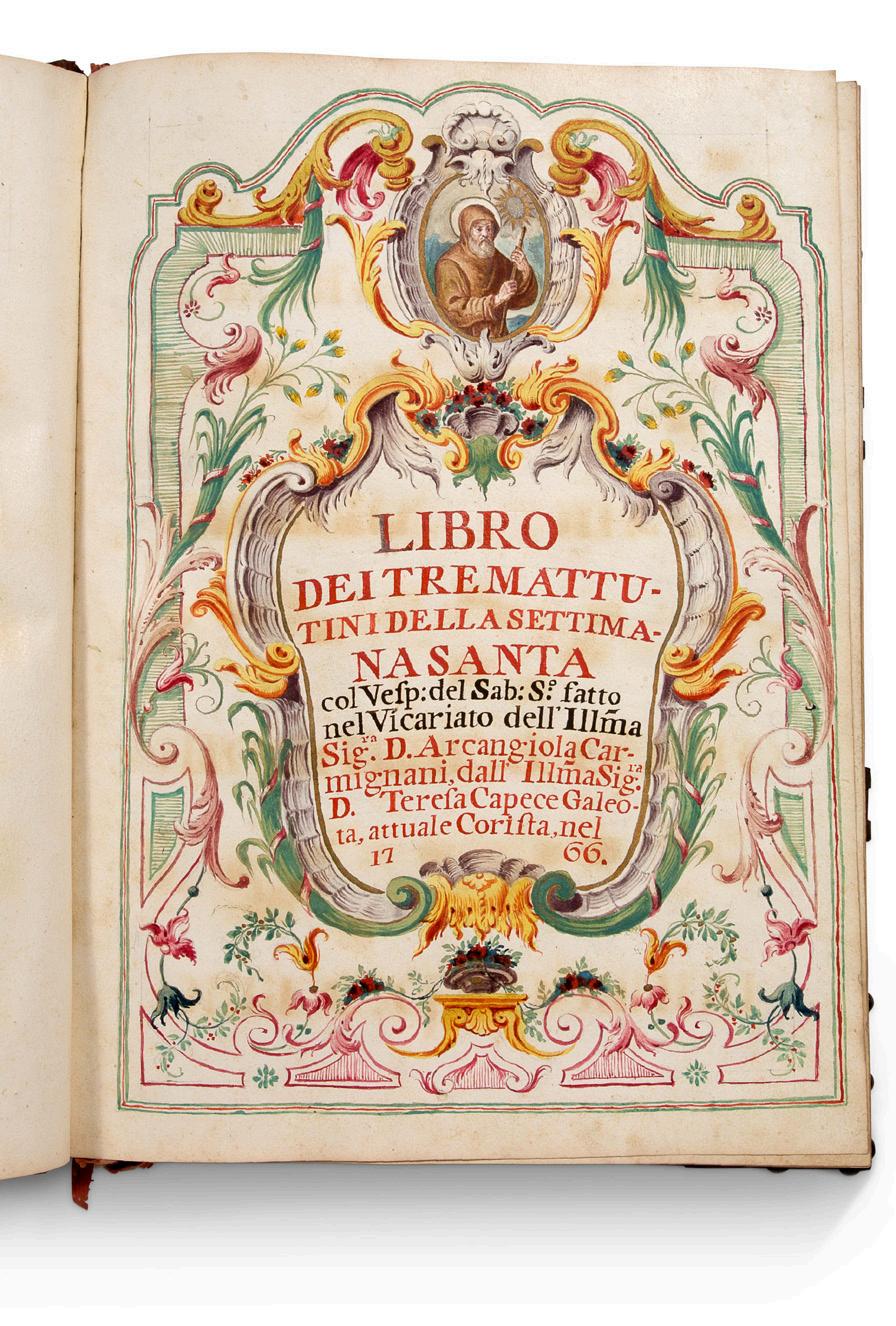 LIBRO
DEI TRE MATTU-
TINI DELLA SETTIMA-
NA SANTA
col Veſp: del Sab: Sº. fatto
nel Vicariato dell' Illm̃a
Sig.ʳᵃ D. Arcangiola Car-
mignani, dall' Illm̃a Sig.ʳᵃ
D. Tereſa Capece Galeo-
ta, attuale Coriſta, nel
17 66.